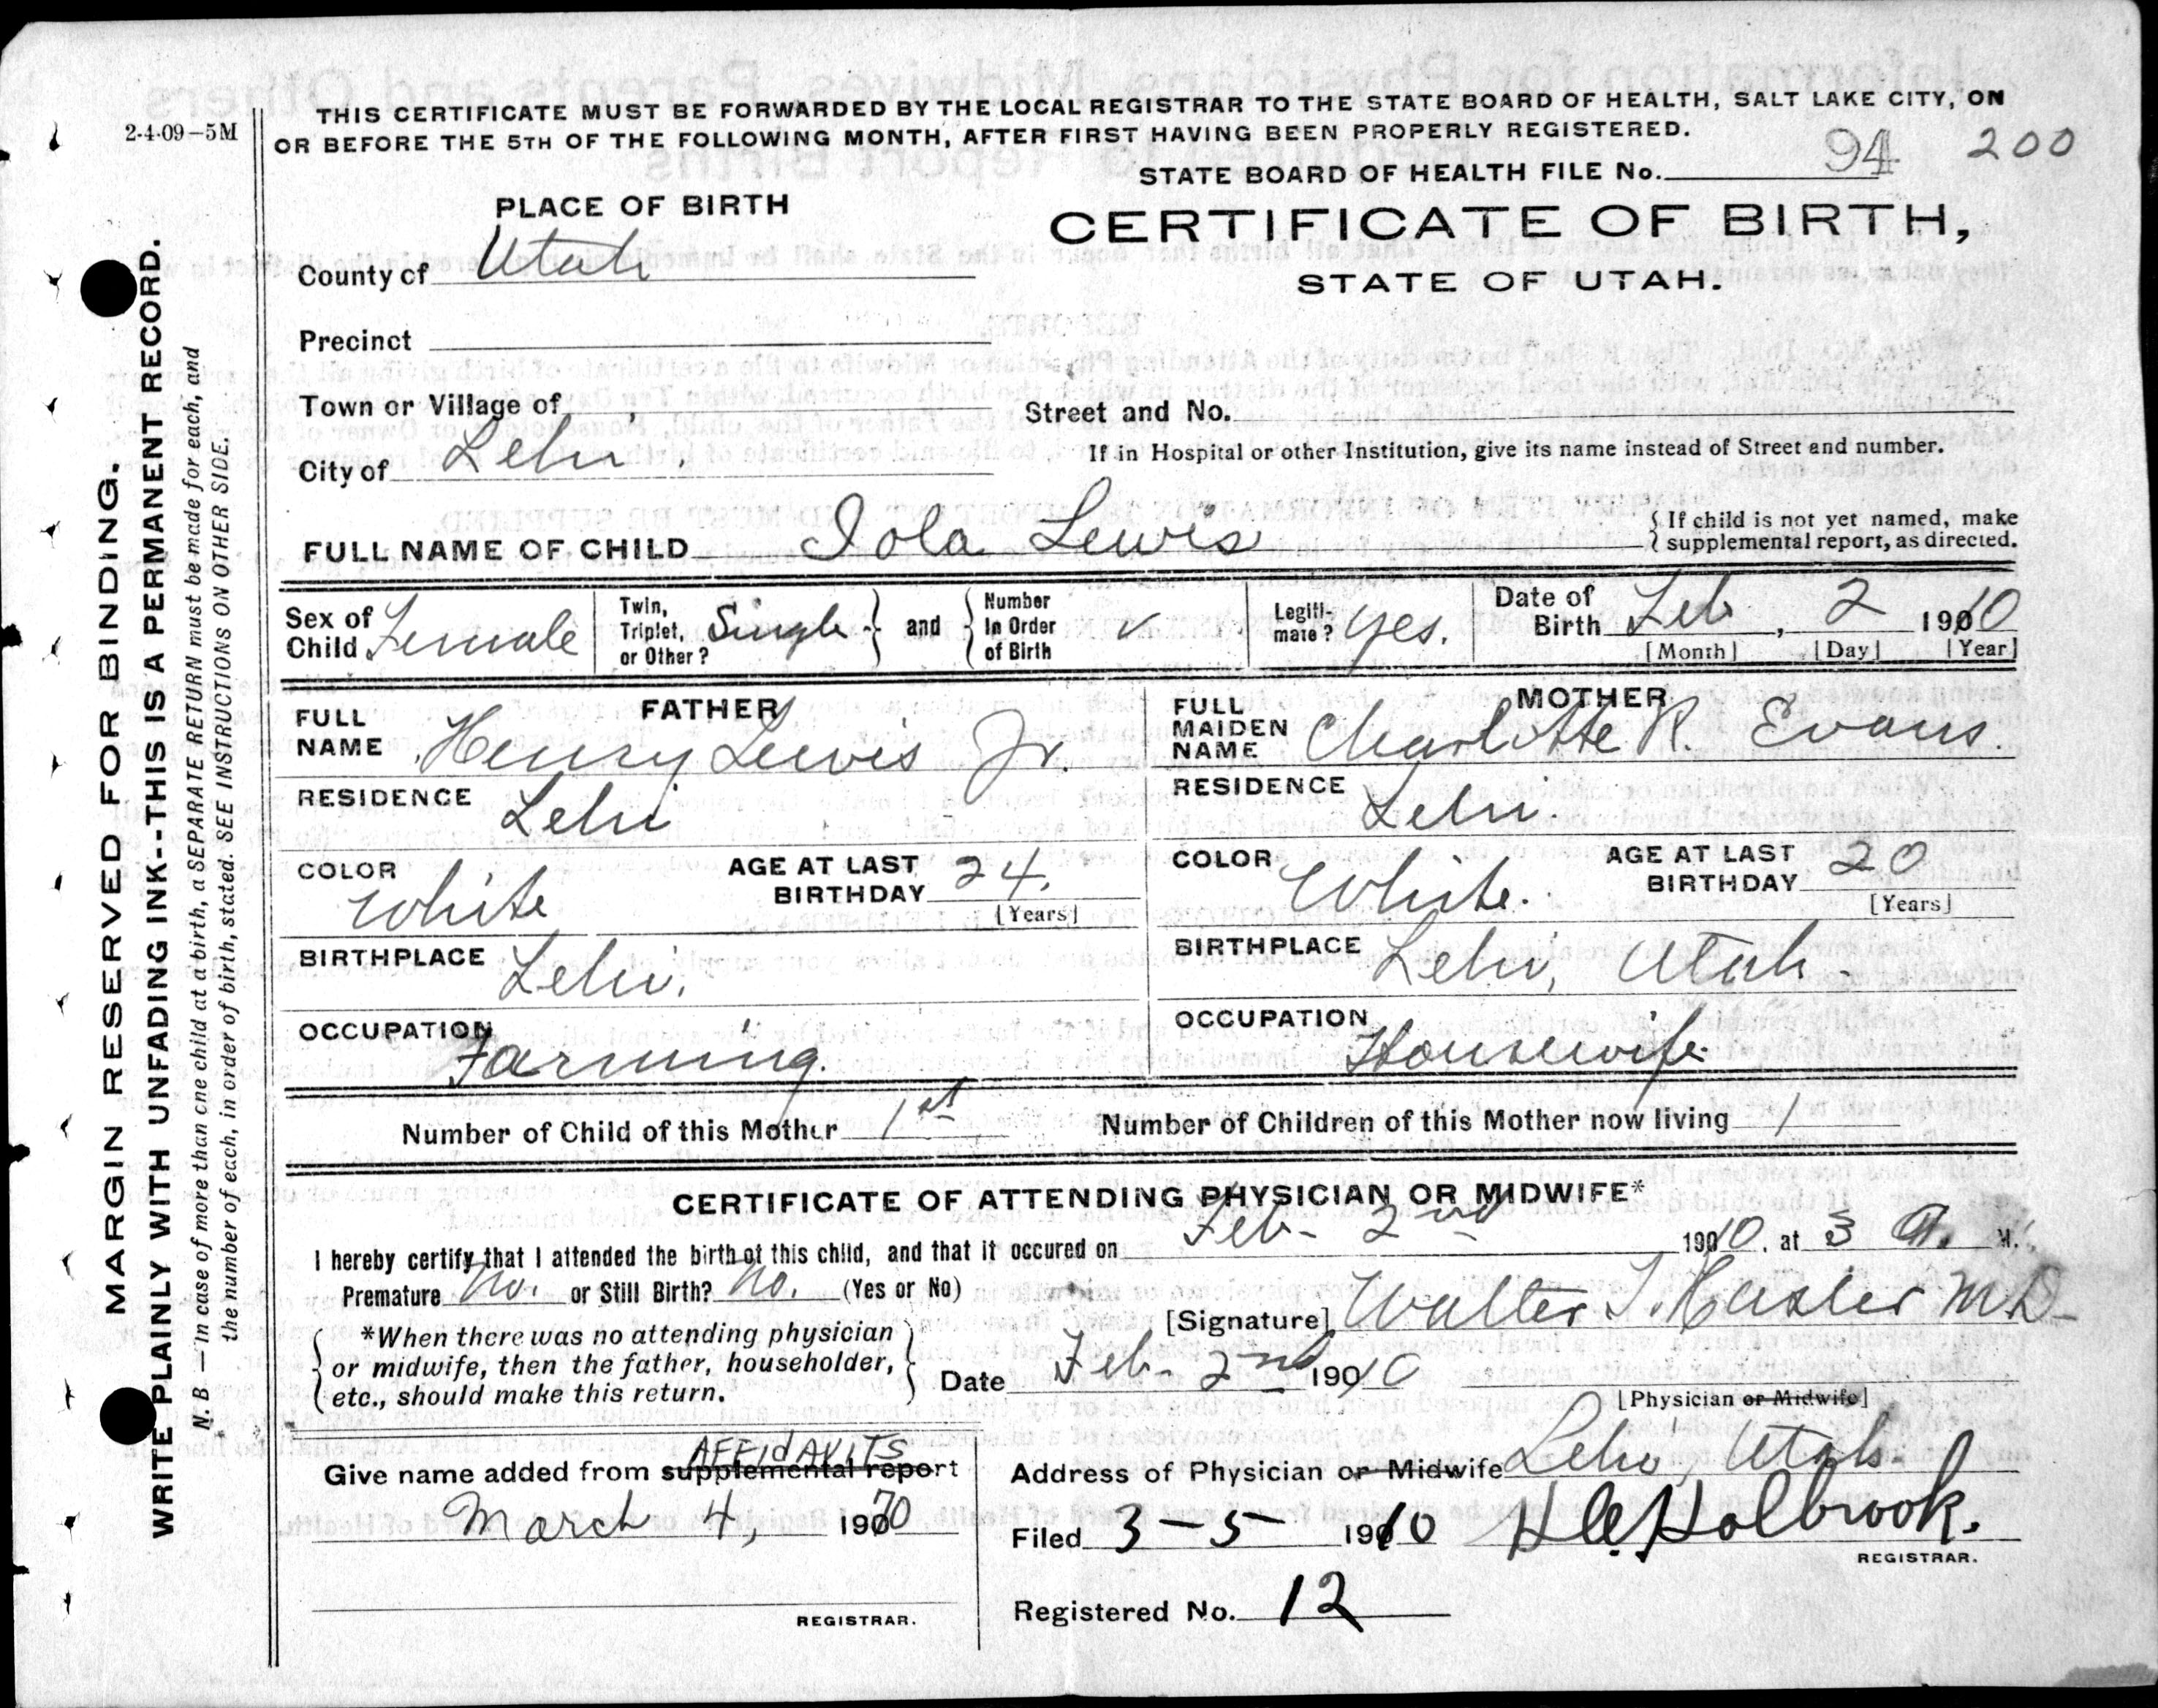 2-4-09—5M
THIS CERTIFICATE MUST BE FORWARDED BY THE LOCAL REGISTRAR TO THE STATE BOARD OF HEALTH, SALT LAKE CITY, ON
OR BEFORE THE 5TH OF THE FOLLOWING MONTH, AFTER FIRST HAVING BEEN PROPERLY REGISTERED.
STATE BOARD OF HEALTH FILE No. 94 200
PLACE OF BIRTH
CERTIFICATE OF BIRTH,
STATE OF UTAH.
County of Utah
Precinct
Town or Village of
Street and No.
City of Lehi.
If in Hospital or other Institution, give its name instead of Street and number.
FULL NAME OF CHILD Iola Lewis
{ If child is not yet named, make
supplemental report, as directed.
Sex of Child Female
Twin, Triplet, or Other? Single } and { Number In Order of Birth ✓
Legiti-mate? Yes.
Date of Birth Feb, 2 1910
[Month] [Day] [Year]
FATHER
FULL NAME Henry Lewis Jr.
RESIDENCE Lehi
COLOR White
AGE AT LAST BIRTHDAY 24.
[Years]
BIRTHPLACE Lehi.
OCCUPATION Farming.
MOTHER
FULL MAIDEN NAME Charlotte R. Evans.
RESIDENCE Lehi.
COLOR White.
AGE AT LAST BIRTHDAY 20
[Years]
BIRTHPLACE Lehi, Utah.
OCCUPATION Housewife.
Number of Child of this Mother 1st
Number of Children of this Mother now living 1
CERTIFICATE OF ATTENDING PHYSICIAN OR MIDWIFE*
I hereby certify that I attended the birth of this child, and that it occured on Feb- 2nd 1910, at 3 A. M.
Premature No. or Still Birth? No. (Yes or No)
[Signature] Walter T. Hasler M.D-
{ *When there was no attending physician
or midwife, then the father, householder,
etc., should make this return. }
Date Feb- 2nd 1910
[Physician or Midwife]
AFFIdAVITS
Give name added from supplemental report
March 4, 1970
REGISTRAR.
Address of Physician or Midwife Lehi, Utah.
Filed 3-5 1910 H C Holbrook.
REGISTRAR.
Registered No. 12
MARGIN RESERVED FOR BINDING.
WRITE PLAINLY WITH UNFADING INK--THIS IS A PERMANENT RECORD.
N. B —In case of more than one child at a birth, a SEPARATE RETURN must be made for each, and
the number of each, in order of birth, stated. SEE INSTRUCTIONS ON OTHER SIDE.